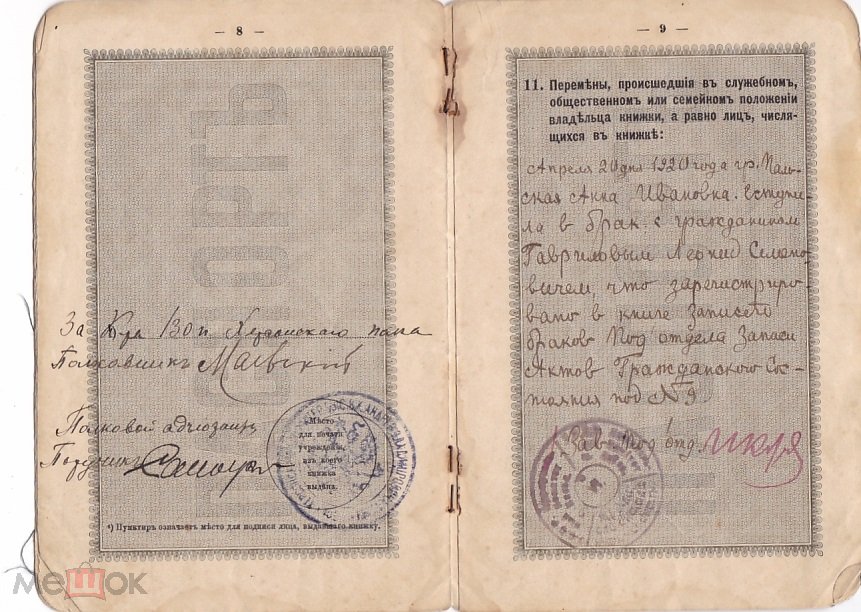 — 8 —
За К-ра 130 п. Херсонскаго полка
Полковникъ Маевскій
Полковой адъютантъ
Поручикъ
Мѣсто
для печати
учрежденія,
изъ коего
книжка
выдана.
¹) Пунктиръ означаетъ мѣсто для подписи лица, выдавшаго книжку.
МЕШОК
— 9 —
11. Перемѣны, происшедшія въ служебномъ,
общественномъ или семейномъ положеніи
владѣльца книжки, а равно лицъ, числя-
щихся въ книжкѣ:
Апреля 20 дня 1920 года гр.
ская Анна Ивановна вступи-
ла в брак с гражданином
Гавриловым Леонид Семено-
вичем, что зарегистриро-
вано в книге записей
браков Под'отдела Записи
Актов Гражданского Сос-
тояния под № 9
Зав. Под'отд.
ПАСПОРТЪ